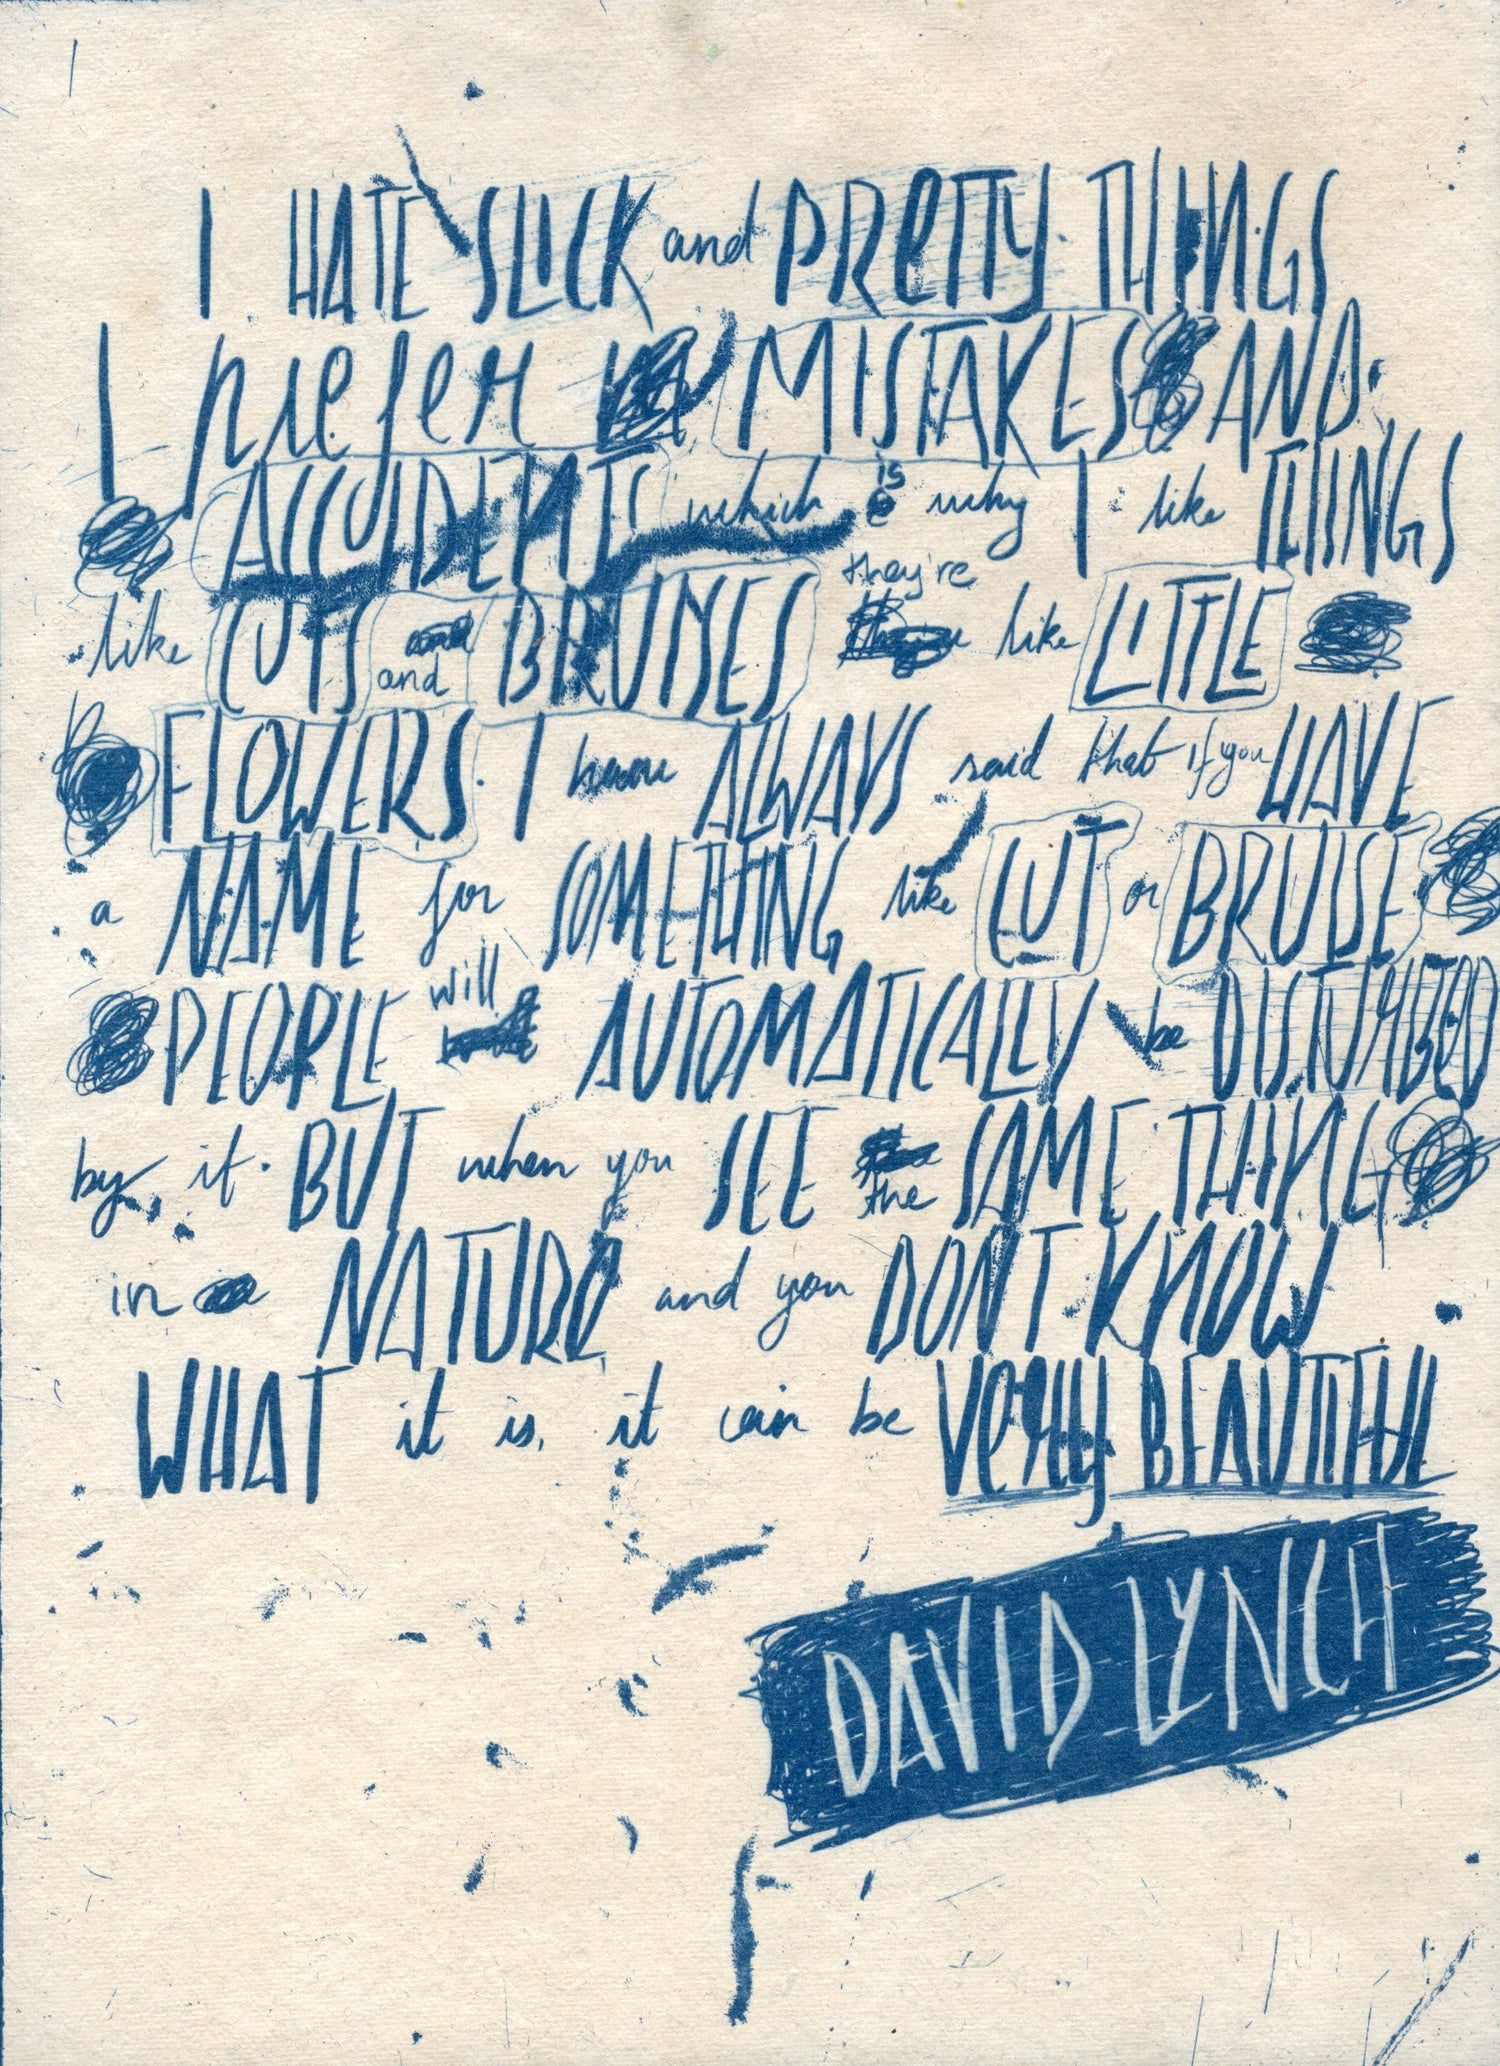 I HATE SLICK and PRETTY THINGS
I prefer MISTAKES AND
ACCIDENTS which is why I like THINGS
like CUTS and BRUISES they're like LITTLE
FLOWERS. I have ALWAYS said that if you HAVE
a NAME for SOMETHING like CUT or BRUISE
PEOPLE will AUTOMATICALLY be DISTURBED
by it. BUT when you SEE the SAME THING
in NATURE and you DON'T KNOW
WHAT it is, it can be VERY BEAUTIFUL
DAVID LYNCH